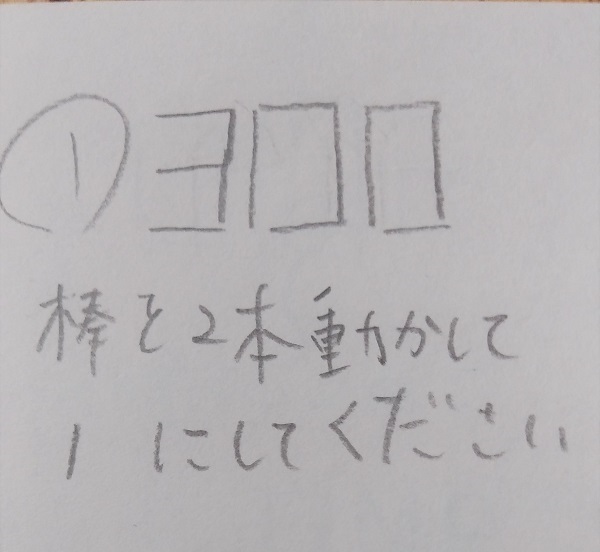 ① 300
棒を2本動かして
1 にしてください